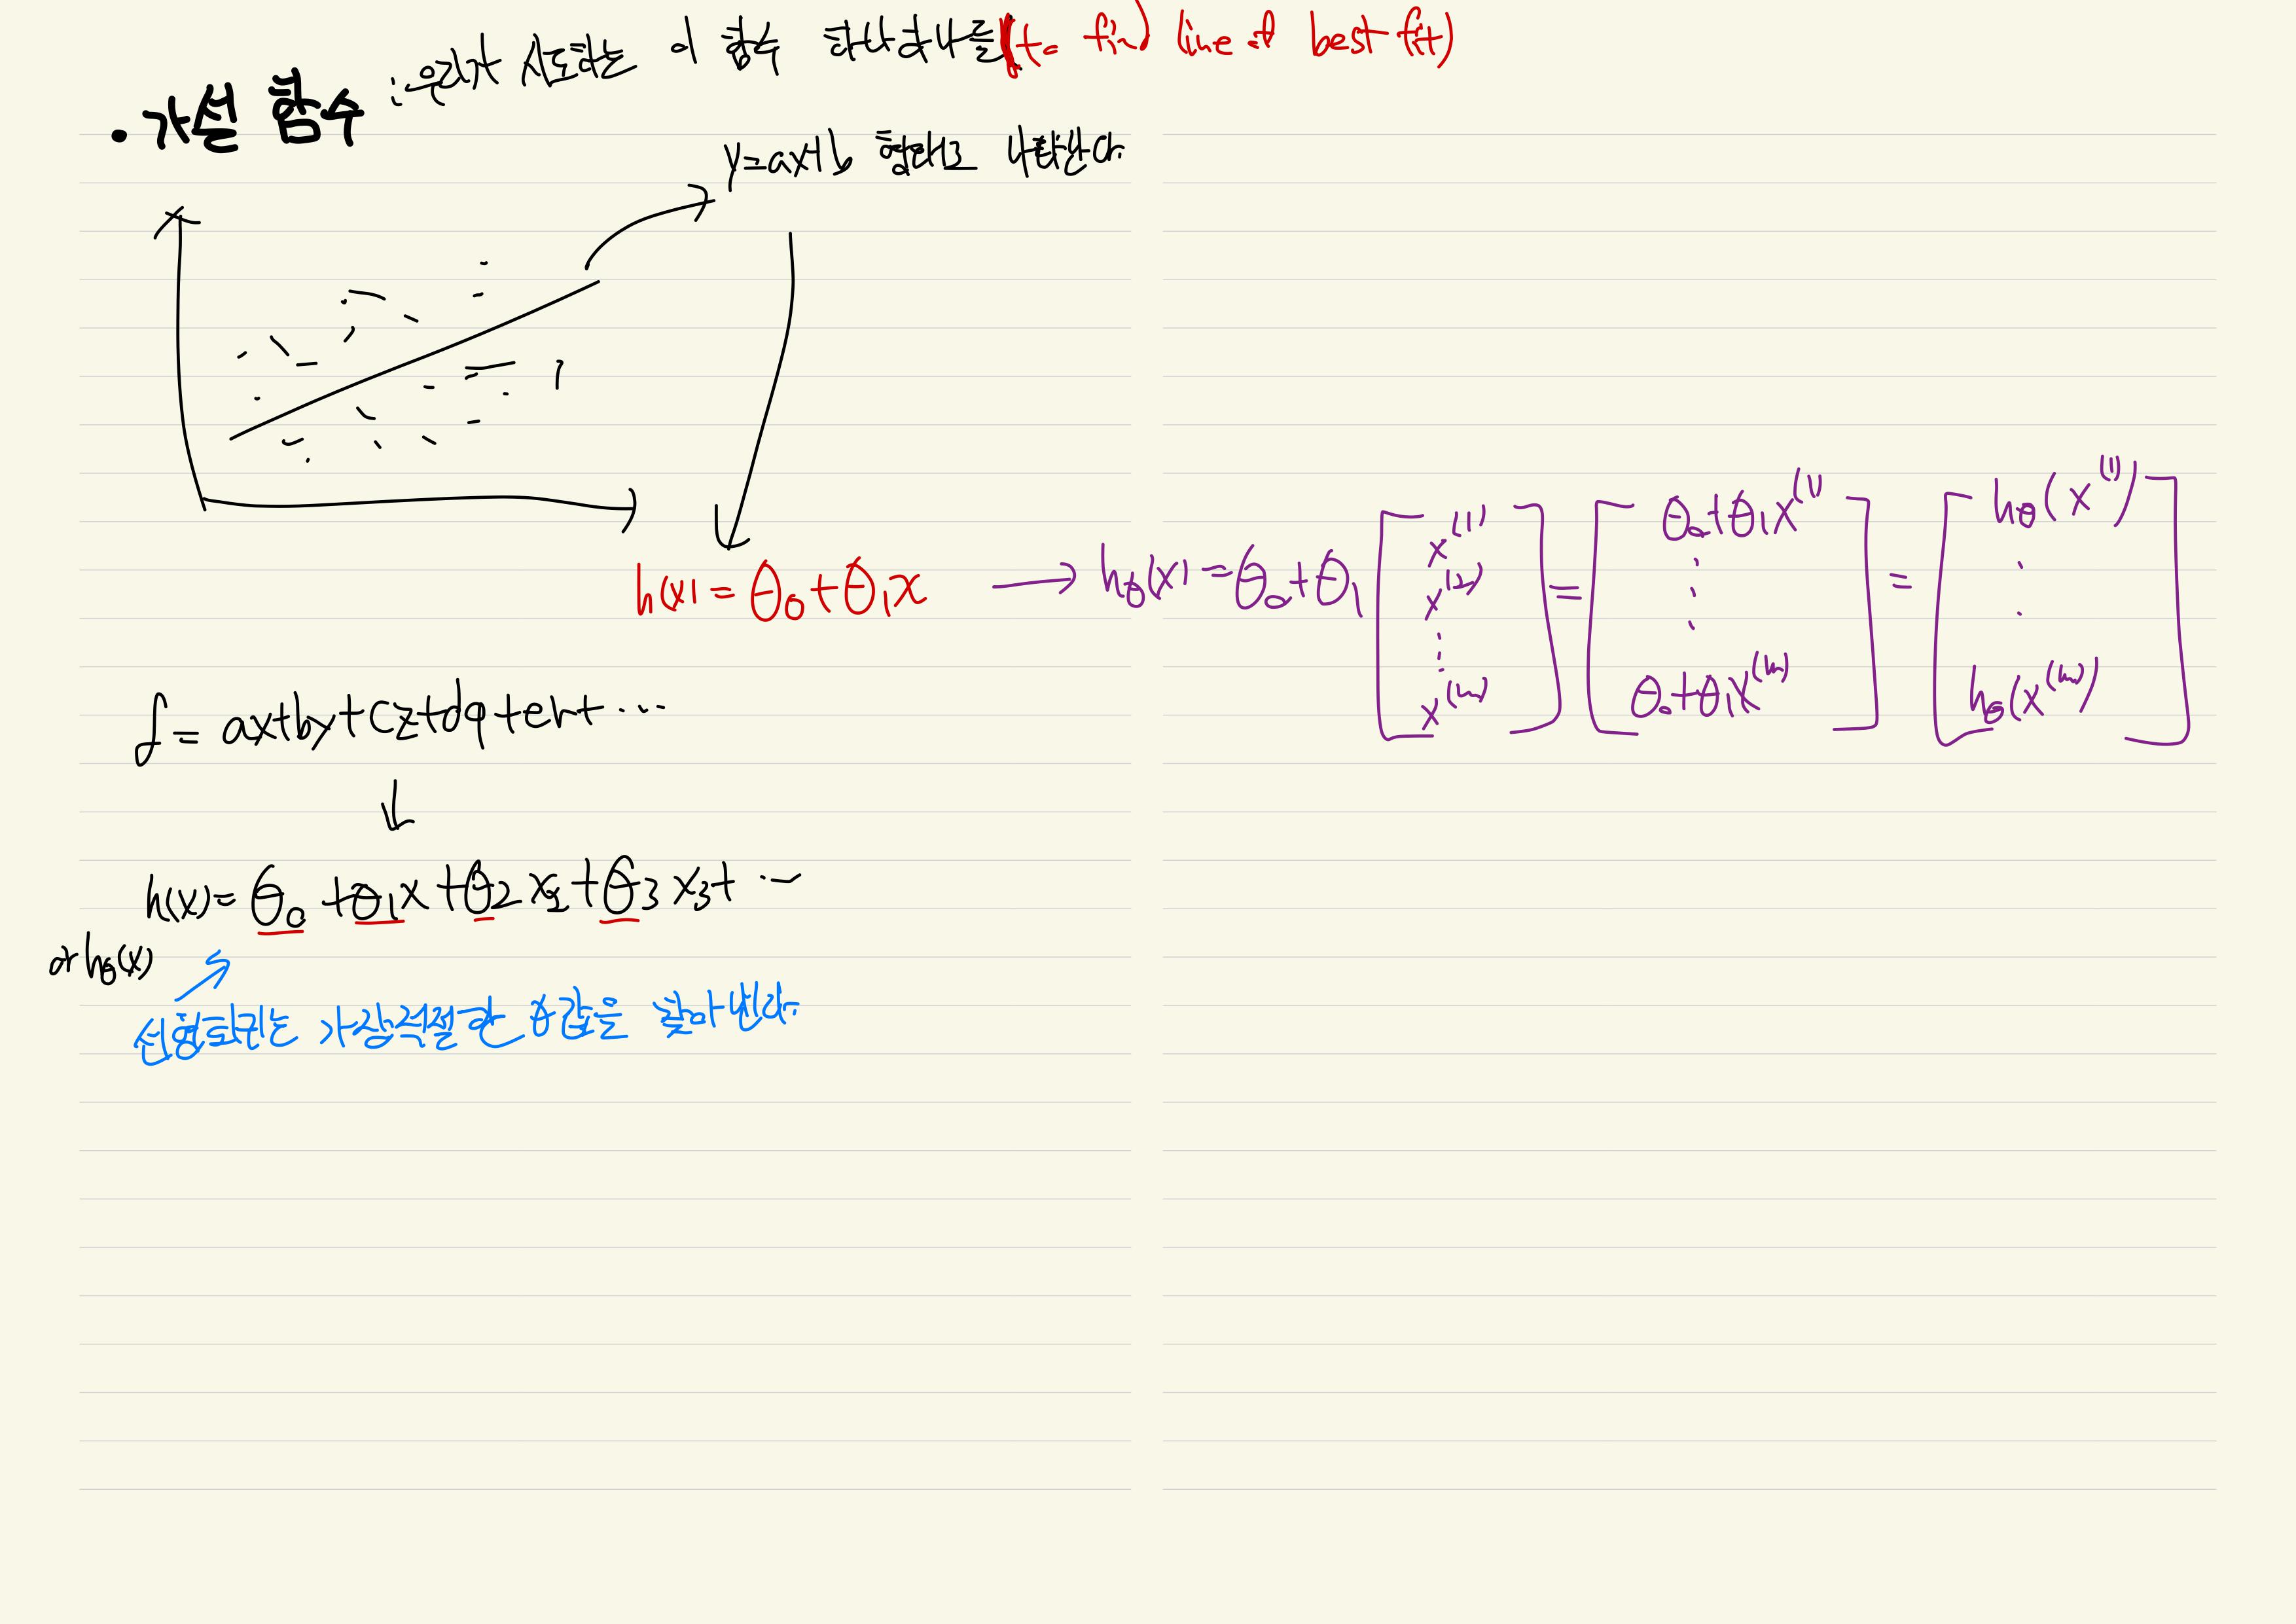 • 가설 함수 : 우리가 시도하는 이 함수 하나하나를 (to find line of best fit)
y=ax+b 형태로 나타낸다.
h(x) = θ₀+θ₁x → h_θ(x) = θ₀+θ₁ [x⁽¹⁾ x⁽²⁾ ⋮ x⁽ᵐ⁾] = [θ₀+θ₁x⁽¹⁾ ⋮ θ₀+θ₁x⁽ᵐ⁾] = [h_θ(x⁽¹⁾) ⋮ h_θ(x⁽ᵐ⁾)]
f = ax+by+cz+dq+er+ ⋯
↓
h(x) = θ₀ + θ₁x + θ₂x₂ + θ₃x₃ + ⋯
or h_θ(x)
선형회귀는 가장 적절한 θ값을 찾아낸다.